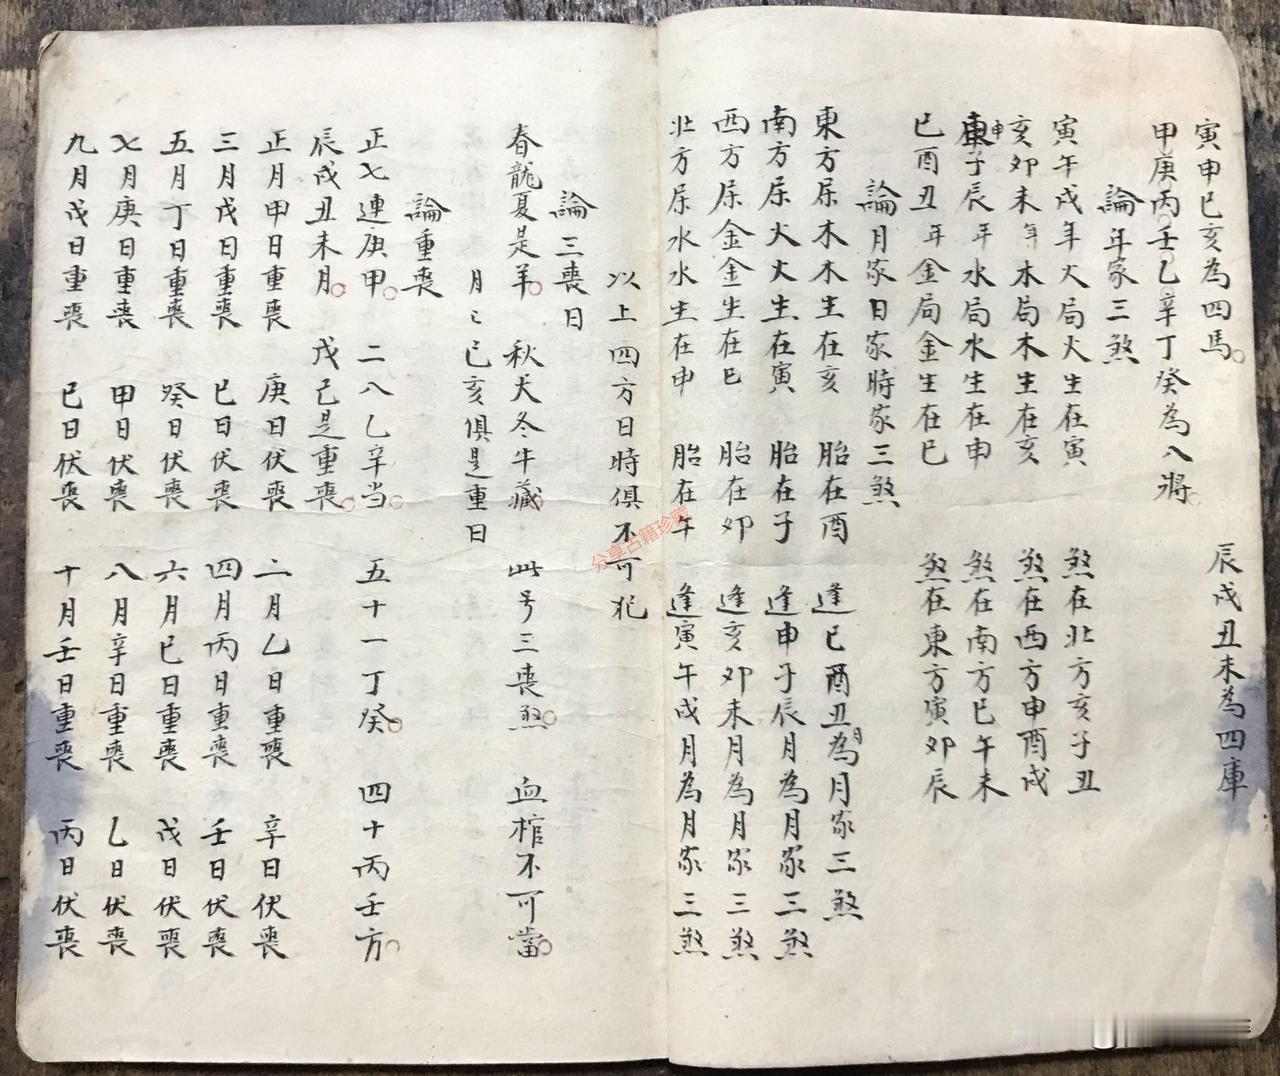 寅申巳亥為四馬。 辰戌丑未為四庫
甲庚丙壬乙辛丁癸為八將。
論年家三煞
寅午戌年火局火生在寅 煞在北方亥子丑
亥卯未年木局木生在亥 煞在西方申酉戌
申子辰年水局水生在申 煞在南方巳午未
巳酉丑年金局金生在巳 煞在東方寅卯辰
論月家日家時家三煞
東方屬木木生在亥 胎在酉 逢巳酉丑月為月家三煞
南方屬火火生在寅 胎在子 逢申子辰月為月家三煞
西方屬金金生在巳 胎在卯 逢亥卯未月為月家三煞
北方屬水水生在申 胎在午 逢寅午戌月為月家三煞
以上四方日時俱不可犯
論三喪日
春龍夏是羊。 秋犬冬牛藏。 此号三喪煞。 血棺不可當。
月〻巳亥俱是重日
論重喪
正七連庚甲。 二八乙辛当。 五十一丁癸。 四十丙壬方。
辰戌丑未月。 戊己是重喪。
正月甲日重喪 庚日伏喪 二月乙日重喪 辛日伏喪
三月戊日重喪 巳日伏喪 四月丙日重喪 壬日伏喪
五月丁日重喪 癸日伏喪 六月巳日重喪 戊日伏喪
七月庚日重喪 甲日伏喪 八月辛日重喪 乙日伏喪
九月戊日重喪 巳日伏喪 十月壬日重喪 丙日伏喪
分享古籍珍藏